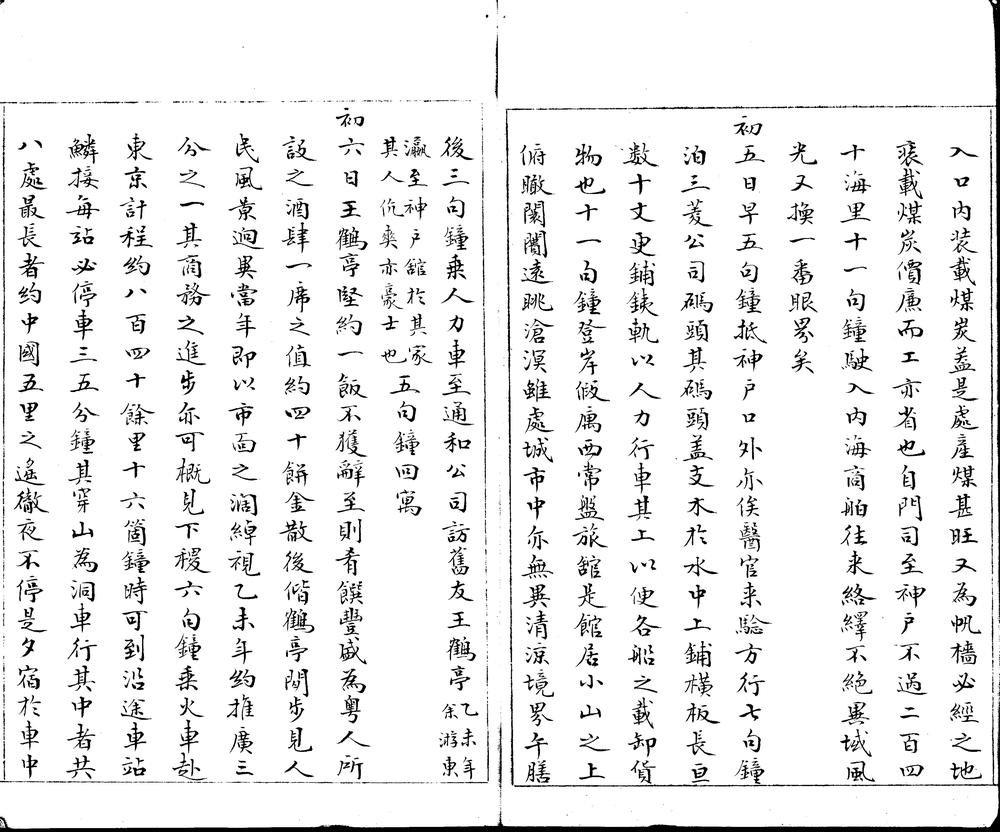 入口內装載煤炭葢是處產煤甚旺又為帆檣必經之地
裝載煤炭價廉而工亦省也自門司至神戶不過二百四
十海里十一句鐘駛入内海商舶往来絡繹不絕異域風
光又換一番眼界矣
初五日早五句鐘抵神戶口外亦俟醫官来驗方行七句鐘
泊三菱公司碼頭其碼頭盖支木於水中上鋪橫板長亘
数十丈更鋪鉄軌以人力行車其上以便各船之載卸貨
物也十一句鐘登岸假寓西常盤旅舘是館居小山之上
俯瞰闤闠遠眺滄溟雖處城市中亦無異清涼境界午膳
後三句鐘乗人力車至通和公司訪舊友王鶴亭乙未年余游東
瀛至神戶舘於其家其人伉爽亦豪士也五句鐘回寓
初六日王鶴亭堅約一飯不獲辭至則肴饌豐盛為粤人所
設之酒肆一席之值約四十餅金散後偕鶴亭閒步見人
民風景迥異當年即以市面之濶綽視乙未年約推廣三
分之一其商務之進步亦可概見下稷六句鐘乗火車赴
東京計程約八百四十餘里十六箇鐘時可到沿途車站
鱗接每站必停車三五分鐘其穿山為洞車行其中者共
八處最長者約中國五里之遙徹夜不停是夕宿於車中